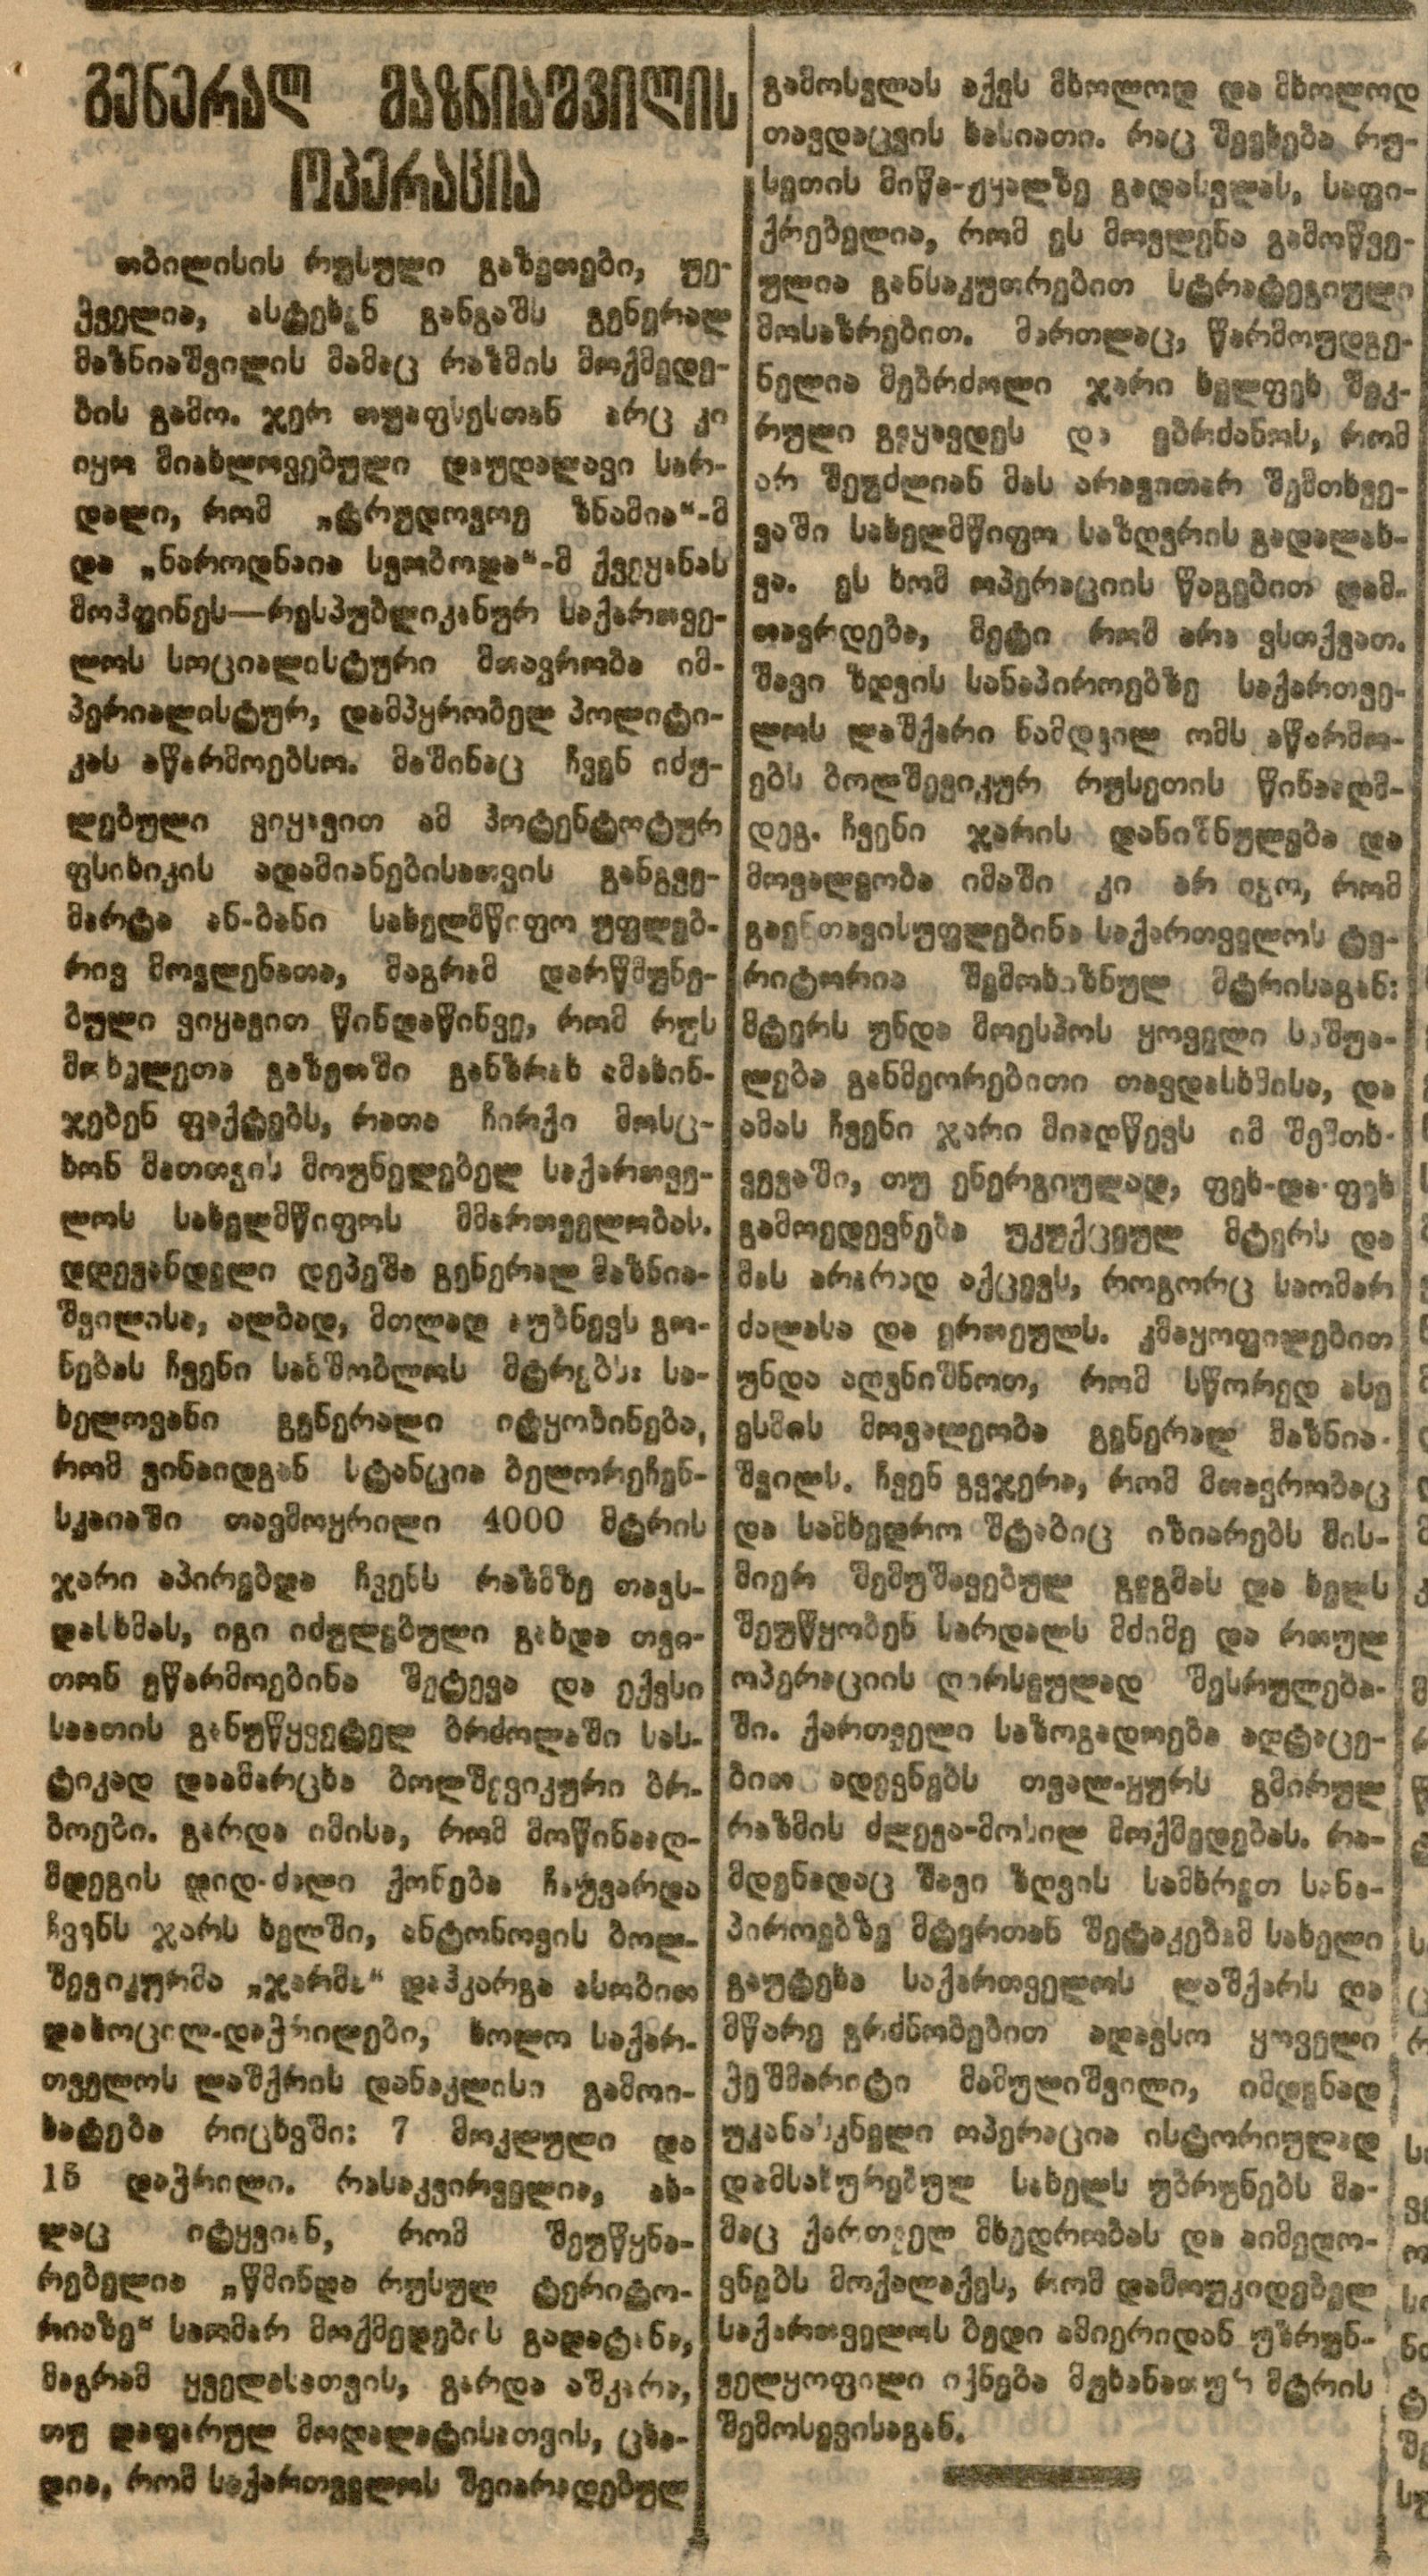 გენერალ მაზნიაშვილის
ოპერაცია
თბილისის რუსული გაზეთები, უე-
ჭველია, ასტეხენ განგაშს გენერალ
მაზნიაშვილის მამაც რაზმის მოქმედე-
ბის გამო. ჯერ თუაფსესთან არც კი
იყო მიახლოვებული დაუდალავი სარ-
დალი, რომ „ტრუდოვოე ზნამია“-მ
და „ნაროდნაია სვობოდა“-მ ქვეყანას
მოჰფინეს—რესპუბლიკანურ საქართვე-
ლოს სოციალისტური მთავრობა იმ-
პერიალისტურ, დამპყრობელ პოლიტი-
კას აწარმოებსო. მაშინაც ჩვენ იძუ-
ლებული ვიყავით ამ ჰოტენტოტურ
ფსიხიკის ადამიანებისათვის განგვე-
მარტა ან-ბანი სახელმწიფო უფლებ-
რივ მოვლენათა, მაგრამ დარწმუნე-
ბული ვიყავით წინდაწინვე, რომ რუს
მოხელეთა გაზეთში განზრახ ამახინ-
ჯებენ ფაქტებს, რათა ჩირქი მოსც-
ხონ მათთვის მოუნელებელ საქართვე-
ლოს სახელმწიფოს მმართველობას.
დდევანდელი დეპეშა გენერალ მაზნია-
შვილისა, ალბად, მთლად აუბნევს გო-
ნებას ჩვენი სამშობლოს მტრებს: სა-
ხელოვანი გენერალი იტყობინება,
რომ ვინაიდგან სტანცია ბელორეჩენ-
სკაიაში თავმოყრილი 4000 მტრის
ჯარი აპირებდა ჩვენს რაზმზე თავს-
დასხმას, იგი იძულებული გახდა თვი-
თონ ეწარმოებინა შეტევა და ექვსი
საათის განუწყვეტელ ბრძოლაში სას-
ტიკად დაამარცხა ბოლშევიკური ბრ-
ბოები. გარდა იმისა, რომ მოწინააღ-
მდეგის დიდ-ძალი ქონება ჩაუვარდა
ჩვენს ჯარს ხელში, ანტონოვის ბოლ-
შევიკურმა „ჯარმა“ დაჰკარგა ასობით
დახოცილ-დაჭრილები, ხოლო საქარ-
თველოს ლაშქრის დანაკლისი გამოი-
ხატება რიცხვში: 7 მოკლული და
15 დაჭრილი. რასაკვირველია, ახ-
ლაც იტყვიან, რომ შეუწყნა-
რებელია „წმინდა რუსულ ტერიტო-
რიაზე“ საომარ მოქმედების გადატანა,
მაგრამ ყველასათვის, გარდა აშკარა,
თუ დაფარულ მოღალატისათვის, ცხა-
დია, რომ საქართველოს შეიარადებულ
გამოსვლას აქვს მხოლოდ და მხოლოდ
თავდაცვის ხასიათი. რაც შეეხება რუ-
სეთის მიწა-ჟყალზე გადასვლას, საფი-
ქრებელია, რომ ეს მოვლენა გამოწვე-
ულია განსაკუთრებით სტრატეგიული
მოსაზრებით. მართლაც, წარმოუდგე-
ნელია მებრძოლი ჯარი ხელფეხ შეკ-
რული გვყავდეს და ებრძანოს, რომ
არ შეუძლიან მას არავითარ შემთხვე-
ვაში სახელმწიფო საზღვრის გადალახ-
ვა. ეს ხომ ოპერაციის წაგებით დამ-
თავრდება, მეტი რომ არა ვსთქვათ.
შავი ზღვის სანაპიროებზე საქართვე-
ლოს ლაშქარი ნამდვილ ომს აწარმო-
ებს ბოლშევიკურ რუსეთის წინააღმ-
დეგ. ჩვენი ჯარის დანიშნულება და
მოვალეობა იმაში კი არ იყო, რომ
გაენთავისუფლებინა საქართველოს ტე-
რიტორია შემოხიზნულ მტრისაგან:
მტერს უნდა მოესპოს ყოველი საშუა-
ლება განმეორებითი თავდასხმისა, და
ამას ჩვენი ჯარი მიაღწევს იმ შემთხ-
ვევაში, თუ ენერგიულად, ფეხ-და-ფეხ
გამოედევნება უკუქცეულ მტერს და
მას არარად აქცევს, როგორც საომარ
ძალასა და ერთეულს. კმაყოფილებით
უნდა აღვნიშნოთ, რომ სწორედ ასე
ესმის მოვალეობა გენერალ მაზნია-
შვილს. ჩვენ გვჯერა, რომ მთავრობაც
და სამხედრო შტაბიც იზიარებს მის-
მიერ შემუშავებულ გეგმას და ხელს
შეუწყობენ სარდალს მძიმე და რთულ
ოპერაციის ღირსეულად შესრულება-
ში. ქართველი საზოგადოება აღტაცე-
ბით ადევნებს თვალ-ყურს გმირულ
რაზმის ძლევა-მოსილ მოქმედებას. რა-
მდენადაც შავი ზღვის სამხრეთ სანა-
პიროებზე მტერთან შეტაკებამ სახელი
გაუტეხა საქართველოს ლაშქარს და
მწარე გრძნობებით ადავსო ყოველი
ჭეშმარიტი მამულიშვილი, იმდენად
უკანასკნელი ოპერაცია ისტორიულად
დამსახურებულ სახელს უბრუნებს მა-
მაც ქართველ მხედრობას და აიმედო-
ვნებს მოქალაქეს, რომ დამოუკიდებელ
საქართველოს ბედი ამიერიდან უზრუნ-
ველყოფილი იქნება მუხანათურ მტრის
შემოსევისაგან.